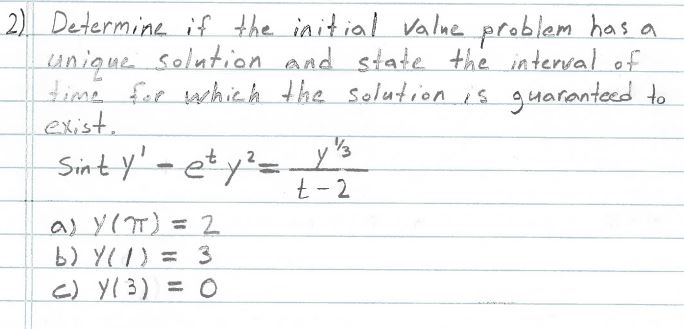 2) Determine if the initial value problem has a
unique solution and state the interval of
time for which the solution is guaranteed to
exist.
sin t y' - e^t y^2 = y^(1/3) / (t - 2)
a) y(π) = 2
b) y(1) = 3
c) y(3) = 0